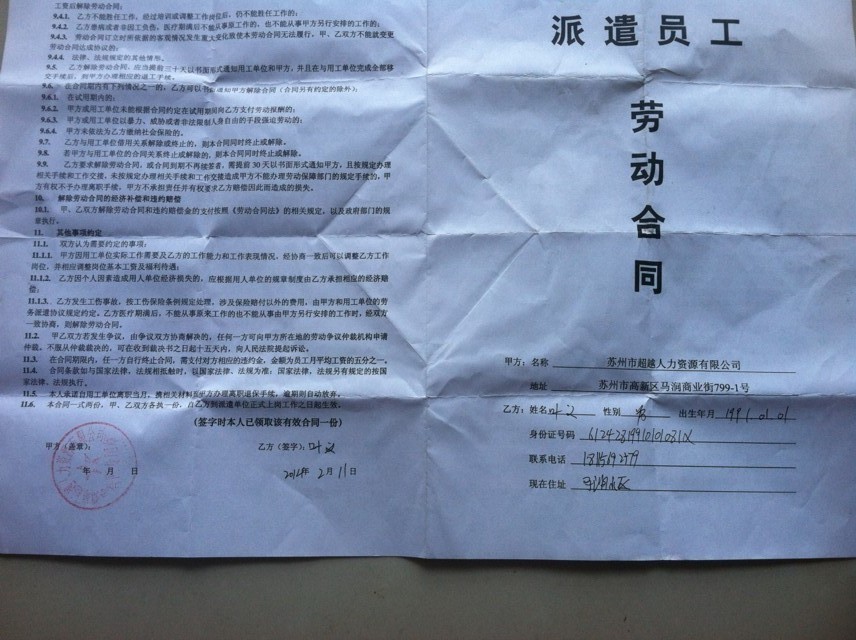 工资后解除劳动合同:
9.4.1. 乙方不能胜任工作, 经过培训或调整工作岗位后, 仍不能胜任工作的;
9.4.2. 乙方患病或者非因工负伤, 医疗期满后不能从事原工作的, 也不能从事甲方另行安排的工作的;
9.4.3. 劳动合同订立时所依据的客观情况发生重大变化致使本劳动合同无法履行, 甲、乙双方不能就变更
劳动合同达成协议的;
9.4.4. 法律、法规规定的其他情形。
9.5. 乙方解除劳动合同, 应当提前三十天以书面形式通知用工单位和甲方, 并且在与用工单位完成全部移
交手续后, 到甲方办理相应的退工手续。
9.6. 在合同期内有下列情况之一的, 乙方可以书面通知甲方解除合同 (合同另有约定的除外):
9.6.1. 在试用期内的;
9.6.2. 甲方或用工单位未能根据合同约定在试用期间向乙方支付劳动报酬的;
9.6.3. 甲方或用工单位以暴力、威胁或者非法限制人身自由的手段强迫劳动的;
9.6.4. 甲方未依法为乙方缴纳社会保险的。
9.7. 乙方与用工单位借用关系解除或终止的, 则本合同同时终止或解除。
9.8. 若甲方与用工单位的合同关系终止或解除的, 则本合同同时终止或解除。
9.9. 乙方要求解除劳动合同, 或合同到期不再续签者, 需提前 30 天以书面形式通知甲方, 且按规定办理
相关手续和工作交接, 未按规定办理相关手续和工作交接造成甲方不能办理劳动保障部门的规定手续的, 甲
方有权不予办理离职手续, 甲方不承担责任并有权要求乙方赔偿因此而造成的损失。
10. 解除劳动合同的经济补偿和违约赔偿
10.1. 甲、乙双方解除劳动合同和违约赔偿金的支付按照《劳动合同法》的相关规定, 以及政府部门的规
章执行。
11. 其他事项约定
11.1. 双方认为需要约定的事项:
11.1.1. 甲方因用工单位实际工作需要及乙方的工作能力和工作表现情况, 经协商一致后可以调整乙方工作
岗位, 并相应调整岗位基本工资及福利待遇;
11.1.2. 乙方因个人因素造成用人单位经济损失的, 应根据用人单位的规章制度由乙方承担相应的经济赔
偿;
11.1.3. 乙方发生工伤事故, 按工伤保险条例规定处理, 涉及保险赔付以外的费用, 由甲方和用工单位的劳
务派遣协议规定约定。乙方医疗期满后, 不能从事原来工作的也不能从事由甲方另行安排的工作时, 经双方
一致协商, 则解除劳动合同,
11.2. 甲乙双方若发生争议, 由争议双方协商解决的, 任何一方可向甲方所在地的劳动争议仲裁机构申请
仲裁。不服从仲裁裁决的, 可在收到裁决书之日起十五天内, 向人民法院提起诉讼。
11.3. 在合同期限内, 任一方自行终止合同, 需支付对方相应的违约金, 金额为员工月平均工资的五分之一。
11.4. 合同条款如与国家法律、法规相抵触时, 以国家法律、法规为准; 国家法律、法规另有规定的按国
家法律、法规执行。
11.5. 本人承诺自用工单位离职当月, 携相关材料到甲方办理离职退保手续, 逾期则自动放弃。
11.6. 本合同一式两份, 甲、乙双方各执一份, 自乙方到派遣单位正式上岗工作之日起生效。
(签字时本人已领取该有效合同一份)
甲方 (盖章):
乙方 (签字): 叶义
年 月 日
2014年 2月 11日
派遣员工
劳
动
合
同
甲方: 名称 苏州市超越人力资源有限公司
地址 苏州市高新区马涧商业街799-1号
乙方: 姓名 叶义 性别 男 出生年月 1991.01.01
身份证号码
联系电话
现在住址